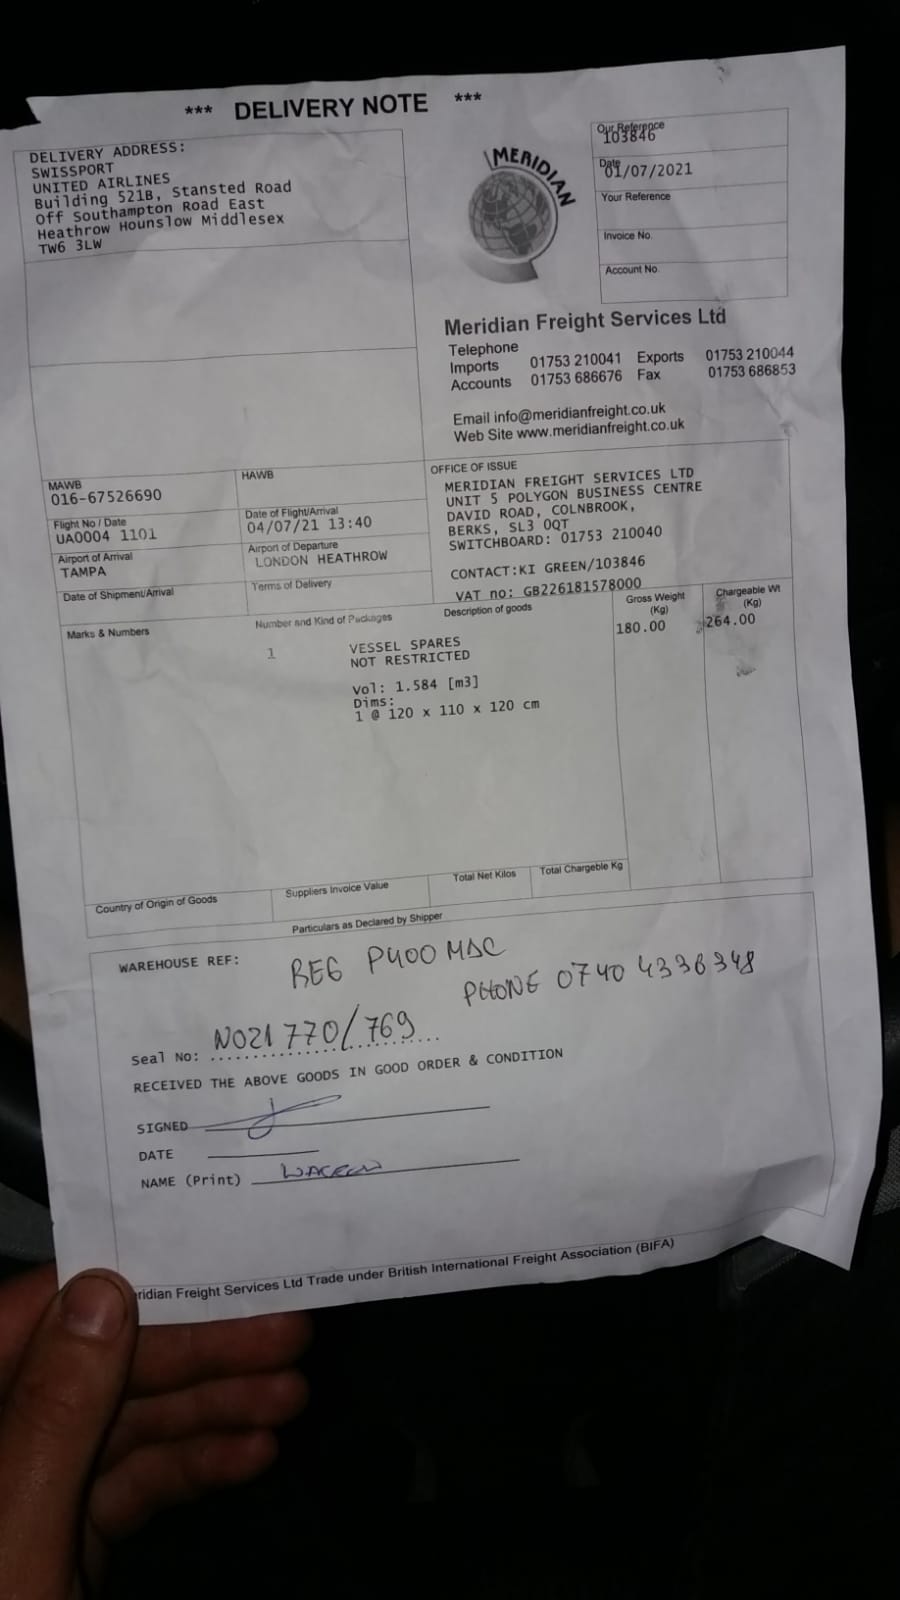 *** DELIVERY NOTE ***
DELIVERY ADDRESS:
SWISSPORT
UNITED AIRLINES
Building 521B, Stansted Road
Off Southampton Road East
Heathrow Hounslow Middlesex
TW6 3LW
MERIDIAN
Our Reference
103846
Date
01/07/2021
Your Reference
Invoice No.
Account No.
Meridian Freight Services Ltd
Telephone
Imports 01753 210041 Exports 01753 210044
Accounts 01753 686676 Fax 01753 686853
Email info@meridianfreight.co.uk
Web Site www.meridianfreight.co.uk
MAWB
016-67526690
HAWB
Flight No / Date
UA0004 1101
Date of Flight/Arrival
04/07/21 13:40
Airport of Arrival
TAMPA
Airport of Departure
LONDON HEATHROW
Date of Shipment/Arrival
Terms of Delivery
OFFICE OF ISSUE
MERIDIAN FREIGHT SERVICES LTD
UNIT 5 POLYGON BUSINESS CENTRE
DAVID ROAD, COLNBROOK,
BERKS, SL3 0QT
SWITCHBOARD: 01753 210040
CONTACT:KI GREEN/103846
VAT no: GB226181578000
Marks & Numbers
Number and Kind of Packages
Description of goods
Gross Weight
(Kg)
Chargeable Wt
(Kg)
1
VESSEL SPARES
NOT RESTRICTED
180.00
264.00
Vol: 1.584 [m3]
Dims:
1 @ 120 x 110 x 120 cm
Country of Origin of Goods
Suppliers Invoice Value
Total Net Kilos
Total Chargeble Kg
Particulars as Declared by Shipper
WAREHOUSE REF:
REG P400 MDC
PHONE 0740 4336348
Seal No: N021 770/769
RECEIVED THE ABOVE GOODS IN GOOD ORDER & CONDITION
SIGNED
DATE
NAME (Print)
ridian Freight Services Ltd Trade under British International Freight Association (BIFA)